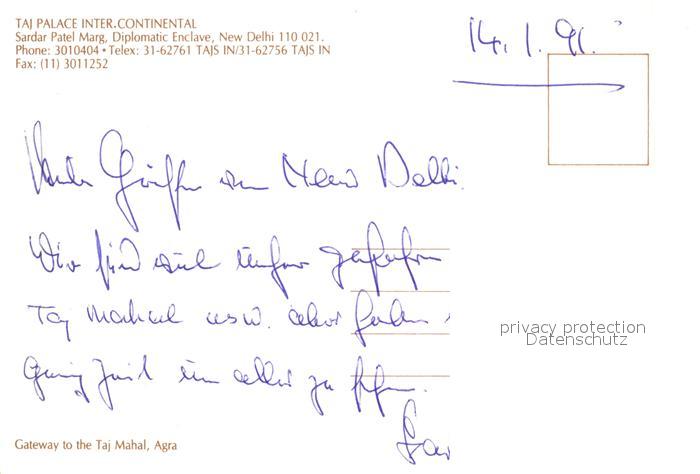 TAJ PALACE INTER.CONTINENTAL
Sardar Patel Marg, Diplomatic Enclave, New Delhi 110 021.
Phone: 3010404 • Telex: 31-62761 TAJS IN/31-62756 TAJS IN
Fax: (11) 3011252
14.1.91.
Grüße New Delhi.
Wir sind viel
Taj Mahal usw. aber
Zeit um alles zu sehen.
privacy protection
Datenschutz
Gateway to the Taj Mahal, Agra